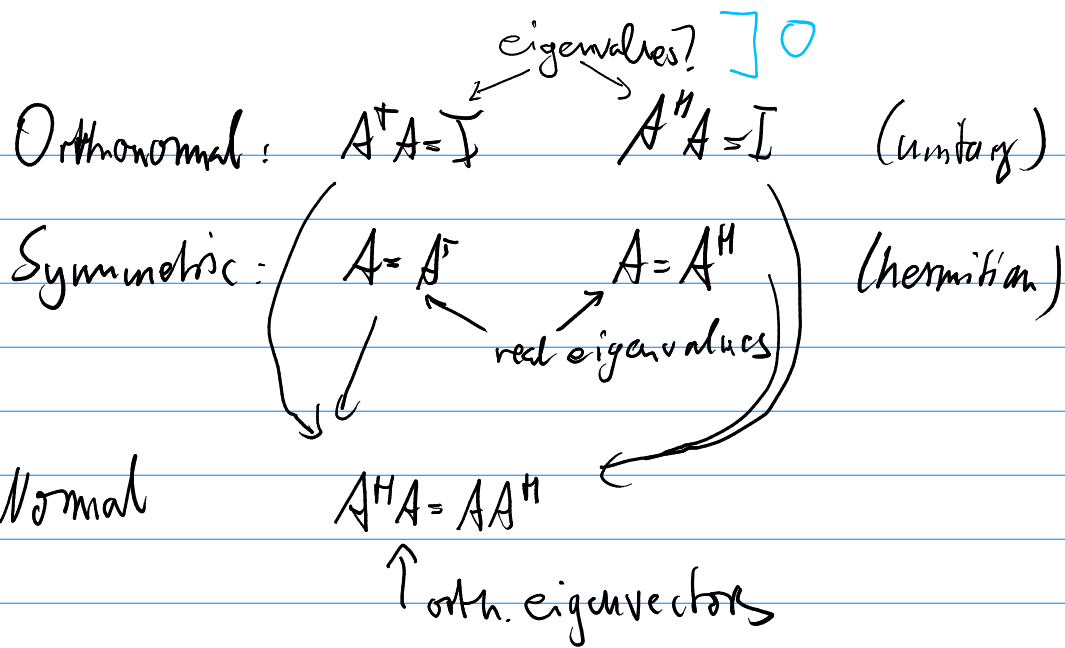 eigenvalues? ] O
Orthonormal: AᵀA = I AᴴA = I (unitary)
Symmetric: A = Aᵀ A = Aᴴ (hermitian)
real eigenvalues
Normal AᴴA = AAᴴ
orth. eigenvectors